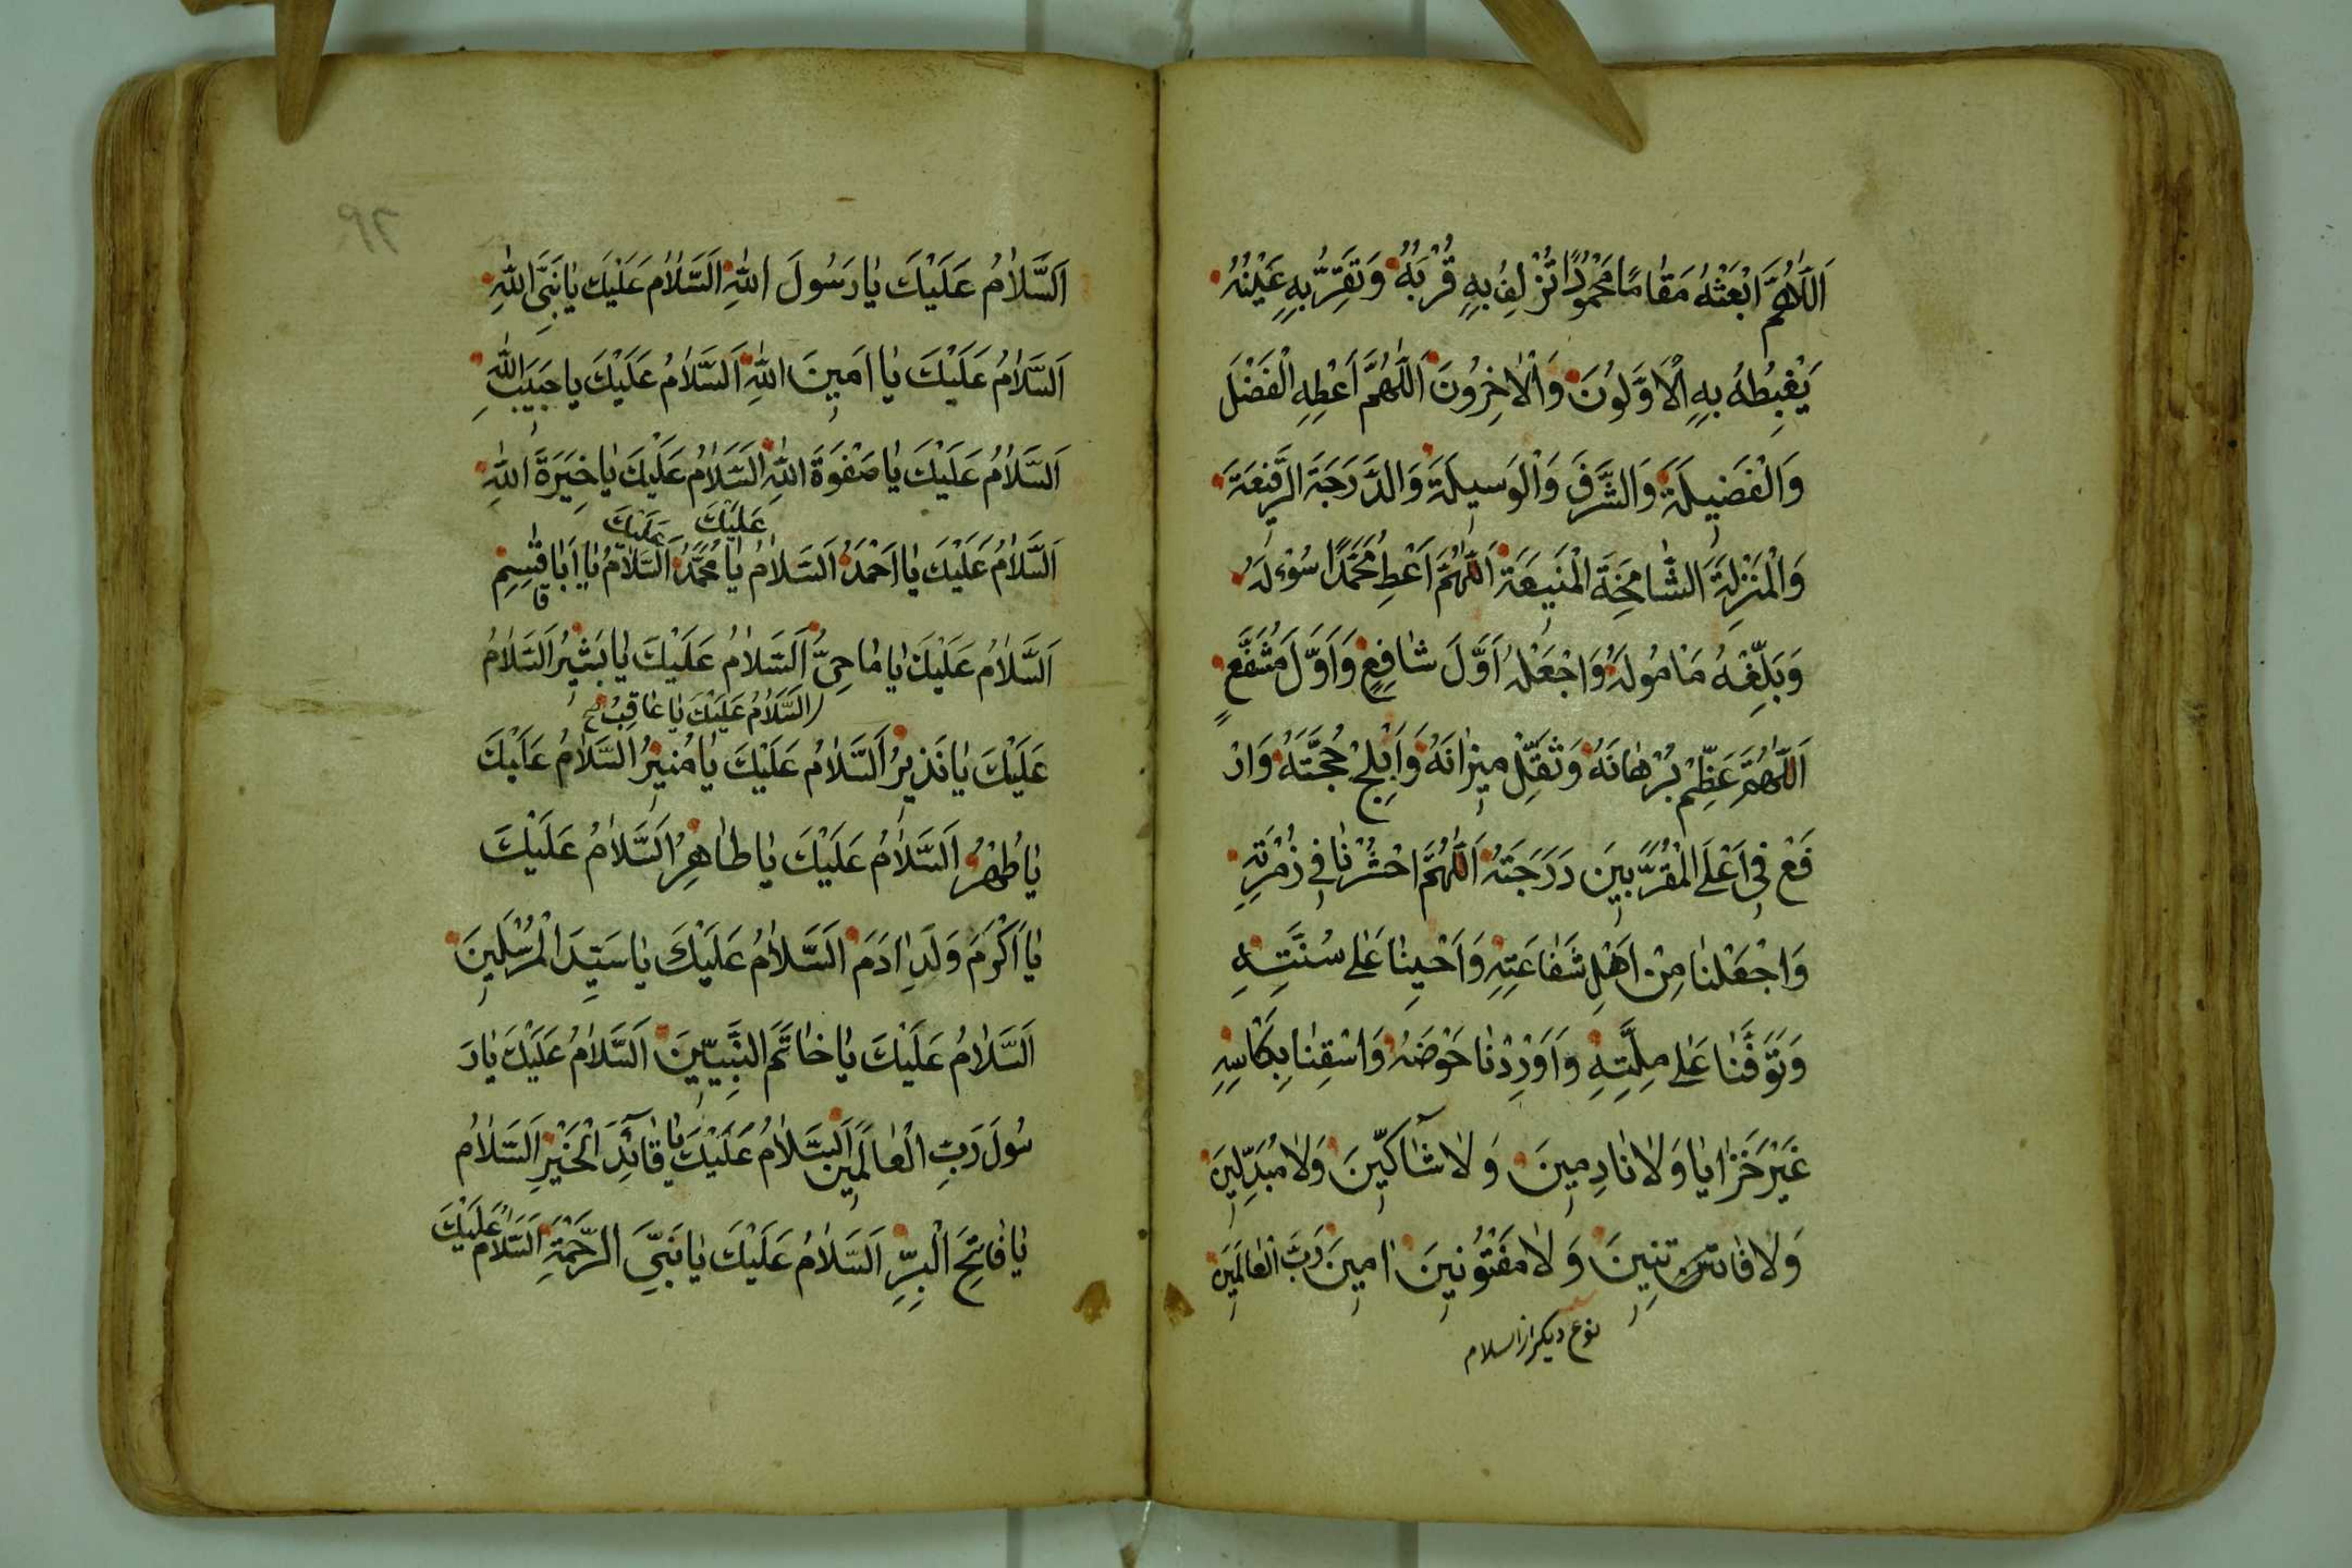 اَللّٰهُمَّ ابْعَثْهُ مَقٰامًا مَحْمُوْدًا تُزْلِفُ بِهٖ قُرْبَهُ وَتُقِرُّ بِهٖ عَيْنَهُ
يَغْبِطُهُ بِهِ الْاَوَّلُوْنَ وَالْاٰخِرُوْنَ اَللّٰهُمَّ اَعْطِهِ الْفَضْلَ
وَالْفَضِيلَةَ وَالشَّرَفَ وَالْوَسِيلَةَ وَالدَّرَجَةَ الرَّفِيْعَةَ
وَالْمَنْزِلَةَ الشّٰامِخَةَ الْمَنِيعَةَ اَللّٰهُمَّ اَعْطِ مُحَمَّدًا سُؤْلَهُ
وَبَلِّغْهُ مَاْمُولَهُ وَاجْعَلْهُ اَوَّلَ شٰافِعٍ وَاَوَّلَ مُشَفَّعٍ
اَللّٰهُمَّ عَظِّمْ بُرْهٰانَهُ وَثَقِّلْ مِيزٰانَهُ وَاَبْلِجْ حُجَّتَهُ وَارْ
فَعْ فِي اَعْلَى الْمُقَرَّبِينَ دَرَجَتَهُ اَللّٰهُمَّ احْشُرْنٰا فِي زُمْرَتِهٖ
وَاجْعَلْنٰا مِنْ اَهْلِ شَفٰاعَتِهٖ وَاَحْيِنٰا عَلٰى سُنَّتِهٖ
وَتَوَفَّنٰا عَلٰى مِلَّتِهٖ وَاَوْرِدْنٰا حَوْضَهُ وَاسْقِنٰا بِكَاْسِهٖ
غَيْرَ خَزٰايٰا وَلٰا نٰادِمِينَ وَلٰا شٰاكِّينَ وَلٰا مُبَدِّلِينَ
وَلٰا فٰاتِنِينَ وَلٰا مَفْتُوْنِينَ اٰمِينَ رَبَّ الْعٰالَمِينَ
نوع ديكر از السلام
اَلسَّلٰامُ عَلَيْكَ يٰا رَسُولَ اللهِ اَلسَّلٰامُ عَلَيْكَ يٰا نَبِيَّ اللهِ
اَلسَّلٰامُ عَلَيْكَ يٰا اَمِينَ اللهِ اَلسَّلٰامُ عَلَيْكَ يٰا حَبِيبَ اللهِ
اَلسَّلٰامُ عَلَيْكَ يٰا صَفْوَةَ اللهِ اَلسَّلٰامُ عَلَيْكَ يٰا خِيَرَةَ اللهِ
عَلَيْكَ عَلَيْكَ
اَلسَّلٰامُ عَلَيْكَ يٰا اَحْمَدُ اَلسَّلٰامُ يٰا مُحَمَّدُ اَلسَّلٰامُ يٰا اَبٰا قٰسِمِ
اَلسَّلٰامُ عَلَيْكَ يٰا مٰاحِيُّ اَلسَّلٰامُ عَلَيْكَ يٰا بَشِيْرُ اَلسَّلٰامُ
اَلسَّلٰامُ عَلَيْكَ يٰا عٰاقِبُ
عَلَيْكَ يٰا نَذِيرُ اَلسَّلٰامُ عَلَيْكَ يٰا مُنِيرُ اَلسَّلٰامُ عَلَيْكَ
يٰا طُهْرُ اَلسَّلٰامُ عَلَيْكَ يٰا طٰاهِرُ اَلسَّلٰامُ عَلَيْكَ
يٰا اَكْرَمَ وَلَدِ اٰدَمَ اَلسَّلٰامُ عَلَيْكَ يٰا سَيِّدَ الْمُرْسَلِينَ
اَلسَّلٰامُ عَلَيْكَ يٰا خٰاتَمَ النَّبِيّينَ اَلسَّلٰامُ عَلَيْكَ يٰا رَ
سُولَ رَبِّ الْعٰالَمِينَ اَلسَّلٰامُ عَلَيْكَ يٰا قٰائِدَ الْخَيْرِ اَلسَّلٰامُ
يٰا فٰاتِحَ الْبِرِّ اَلسَّلٰامُ عَلَيْكَ يٰا نَبِيَّ الرَّحْمَةِ اَلسَّلٰامُ عَلَيْكَ